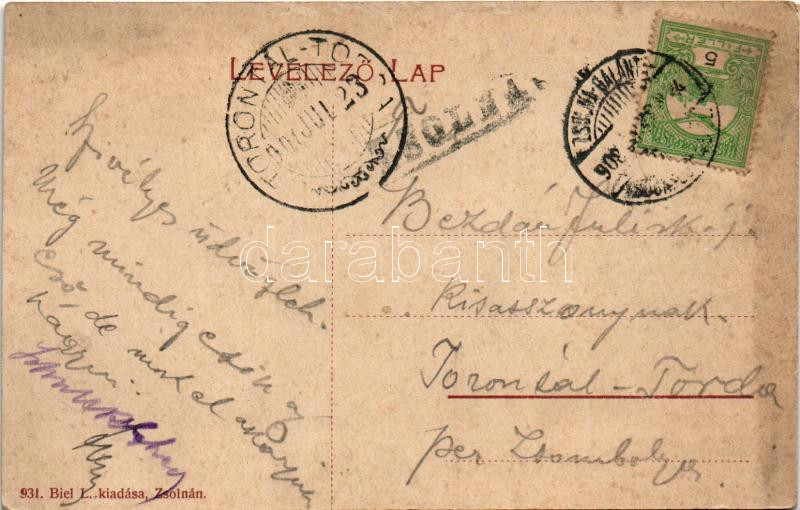 LEVELEZŐ LAP
TORONTÁL-TORDA
907 JUL 23
ZSOLNA
ZSOLNA-GALÁNTA
908
FILLÉR
5
Szivélyes üdvözlet.
Még mindig esik az
eső de most el akarjuk
hagyni.
Bezdán Juliskája
kisasszonynak
Torontál-Torda
per Zsombolya
darabanth
931. Biel L. kiadása, Zsolnán.